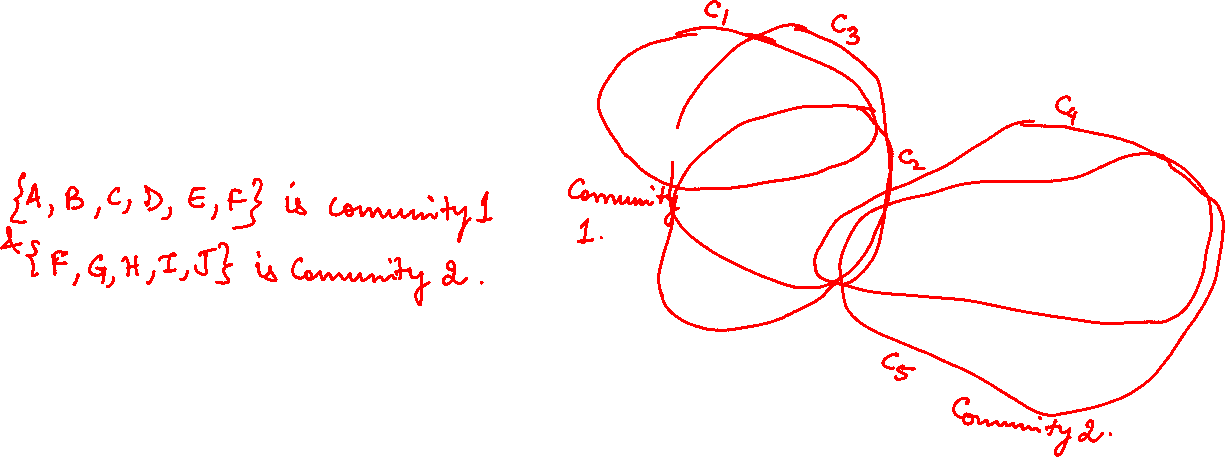 {A, B, C, D, E, F} is comunity 1
& {F, G, H, I, J} is Comunity 2.
C1
C3
C2
C4
Comunity
1.
C5
Comunity 2.